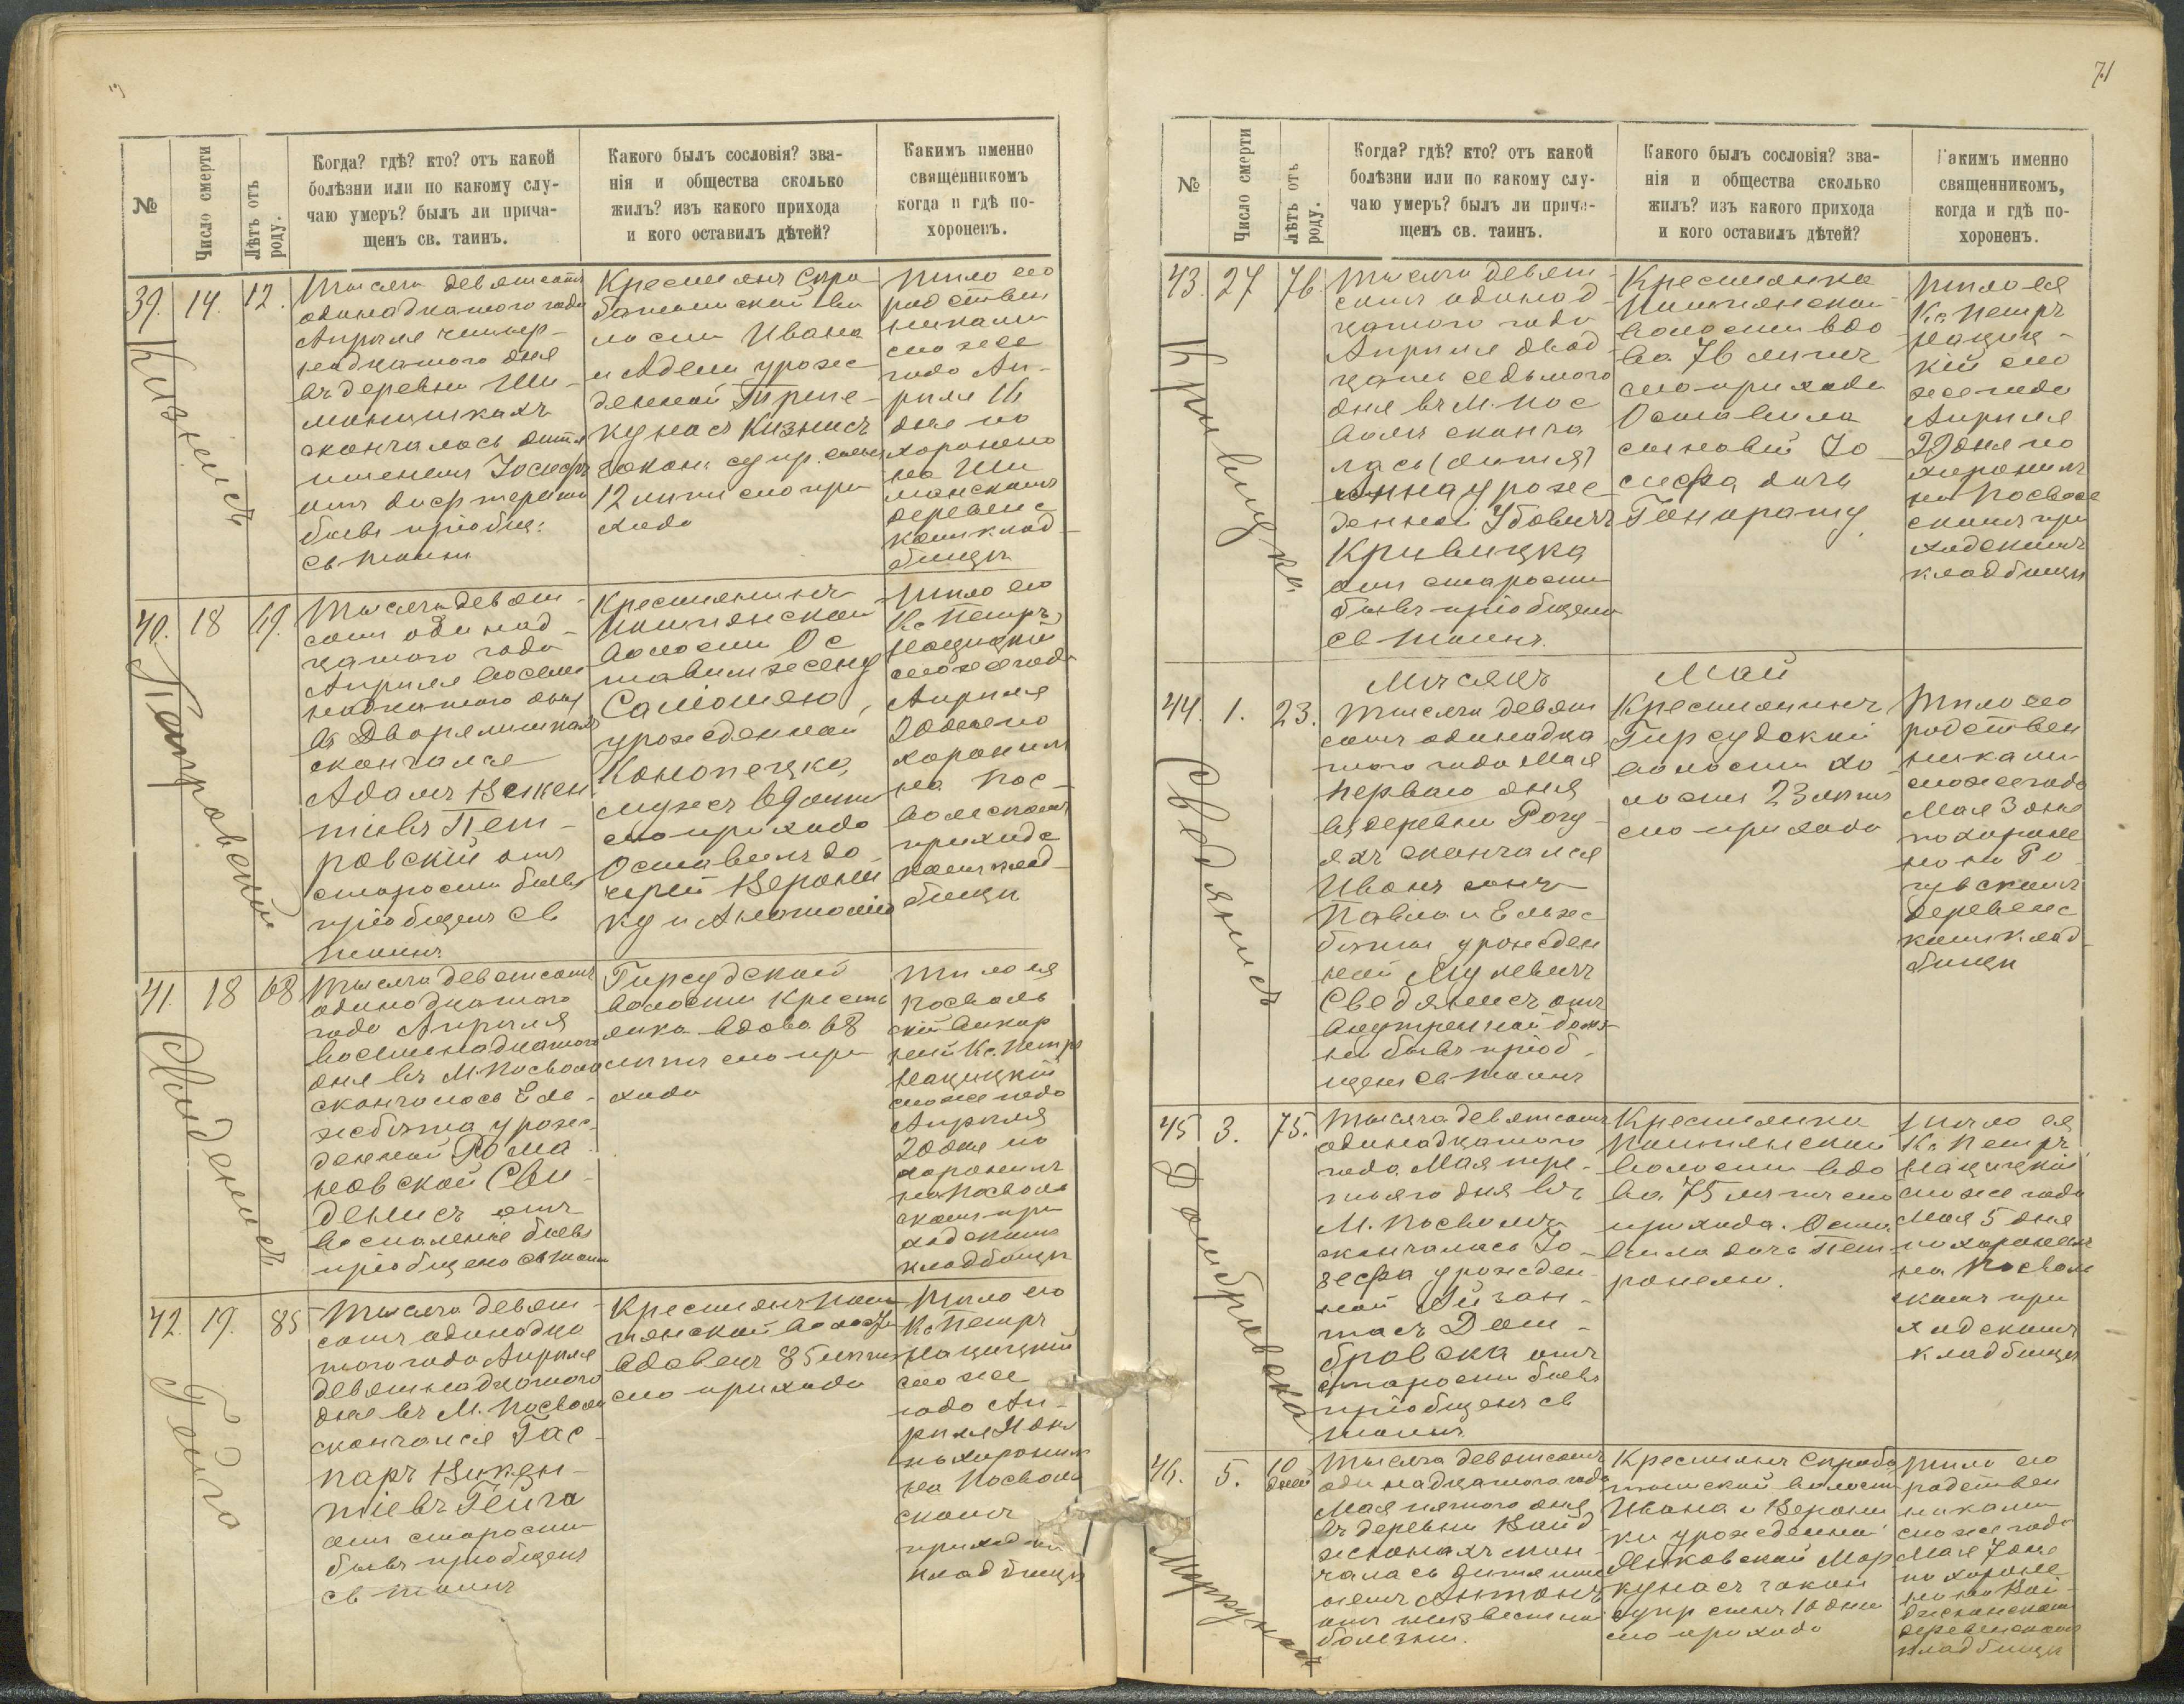 71
№
Число смерти
Лѣтъ отъ роду.
Когда? гдѣ? кто? отъ какой
болѣзни или по какому слу-
чаю умеръ? былъ ли прича-
щенъ св. таинъ.
Какого былъ сословія? зва-
нія и общества сколько
жилъ? изъ какого прихода
и кого оставилъ дѣтей?
Какимъ именно
священникомъ
когда и гдѣ по-
хороненъ.
39. 14. 12.
Кизнисъ
Тысяча девятсотъ
одинадцатого года
Апрѣля четыр-
надцатого дня
въ деревни
скончалось дитя
именемъ Іосифъ
отъ дифтерита
бывъ пріобщ:
св. таинъ
Крестьянъ
волости Ивана
и Адели урож-
денной
Кизнисъ
закон. супр. сынъ
12 лѣтъ сего при
хода
Тѣло его
родствен
никами
сего же
года Ап-
рѣля 16
дня по
хоронено
на
деревенс
комъ клад-
бищѣ
40. 18 69.
Петровскій
Тысяча девят-
сотъ одинад-
цатого года
Апрѣля восем
надцатого дня
въ Дворялишкахъ
скончался
Адамъ Викен
тіевъ Пет-
ровскій отъ
старости бывъ
пріобщенъ св
таинъ
Крестьянинъ
волости Ос
тавилъ жену
Саломею,
урожденной
Конопецка,
сего прихода
Оставилъ до
черей Верони
ку и Антонію
Тѣло его
Кс. Петръ
Нацицкій
сего же года
Апрѣля
20 дня по
хоронилъ
на Пос-
вольскомъ
приходс
комъ клад-
бищѣ
41. 18 68
Свиденисъ
Тысяча девятсотъ
одинодцатого
года Апрѣля
восемнадцатого
дня въ М. Посволи
скончалось Еле-
жбѣта урож-
денной Рома
новской Сви-
денисъ отъ
воспаленіе бывъ
пріобщено св таин
Гирсудской
волости кресть
янка вдова 68
лѣтъ сего при-
хода
Тѣло ея
Посволь
скій викар
ній Кс. Петръ
Нацицкій
сего же года
Апрѣля
20 дня по
хоронилъ
на Посволь
скомъ при
ходскомъ
кладбищѣ
42. 19. 85
Гейга
Тысяча девят-
сотъ одинадца
того года Апрѣля
девятнадцатого
дня въ М. Посволи
скончался Гас-
паръ Викен-
тіевъ Гейга
отъ старости
бывъ пріобщенъ
св таинъ
Крестьянъ
волости
вдовецъ 85 лѣтъ
сего прихода
Тѣло его
Кс. Петръ
Нацицкій
сего же
года Ап-
рѣля 21 дня
похоронилъ
на Посволь
скомъ
приход
кладбищѣ
№
Число смерти
Лѣтъ отъ роду.
Когда? гдѣ? кто? отъ какой
болѣзни или по какому слу-
чаю умеръ? былъ ли прича-
щенъ св. таинъ.
Какого былъ сословія? зва-
нія и общества сколько
жилъ? изъ какого прихода
и кого оставилъ дѣтей?
Какимъ именно
священникомъ,
когда и гдѣ по-
хороненъ.
43. 27 76.
Кривицка
Тысяча девят-
сотъ одинад-
цатого года
Апрѣля двад-
цать седьмого
дня въ М. Пос
волѣ сконча
лась (дитя)
Анна урож-
денной Убовичъ
Кривицка
отъ старости
бывъ пріобщена
св таинъ.
Крестьянка
волости вдо
ва 76 лѣтъ
сего прихода
Оставила
сыновей Іо-
сифа дочь
Гонорату.
Тѣло ея
Кс. Петръ
Нациц-
кій сего
же года
Апрѣля
29 дня по
хоронилъ
на Посволь
скомъ при
ходскомъ
кладбищѣ
Мѣсяцъ Май
44. 1. 23.
Сведянисъ
Тысяча девят
сотъ одинадца
того года Мая
перваго дня
въ деревни Рогу-
яхъ скончался
Иванъ сынъ
Павла и Ельж-
бѣты урожден
ной Мулевичъ
Сведянисъ отъ
внутренной болѣз-
ни бывъ пріоб-
щенъ св таинъ
Крестьянинъ
Гирсудской
волости хо-
лостъ 23 лѣтъ
сего прихода
Тѣло его
родствен
никами
сего же года
Мая 3 дня
похороне
но на Ро
гувскомъ
деревенс
комъ клад-
бищѣ
45 3. 75.
Домбровска
Тысяча девятсотъ
одинадцатого
года Мая тре-
тьяго дня въ
М. Посволѣ
скончалась Іо-
зефа урожден-
ной Айзан-
тасъ Дом-
бровска отъ
старости бывъ
пріобщенъ св
таинъ
Крестьянки
волости вдо
ва 75 лѣтъ сего
прихода. Оста
вила дочь Пет-
ронелю.
Тѣло ея
Кс. Петръ
Нацицкій
сего же года
Мая 5 дня
похоронилъ
на Посволь
скомъ при
ходскомъ
кладбищѣ
46. 5. 10 дней
Меркунасъ
Тысяча девятсотъ
одинадцатого года
Мая пятого дня
въ деревни
скон
чалась дитя име
немъ Антонъ
отъ неизвестной
болезни.
Крестьянъ
волости
Ивана и Верони
ки урожденной
Янковской Мер
кунасъ закон
супр сынъ 10 дней
сего прихода
Тѣло его
родствен
никами
сего же года
Мая 7 дня
похороне
но на
деревенскомъ
кладбищѣ